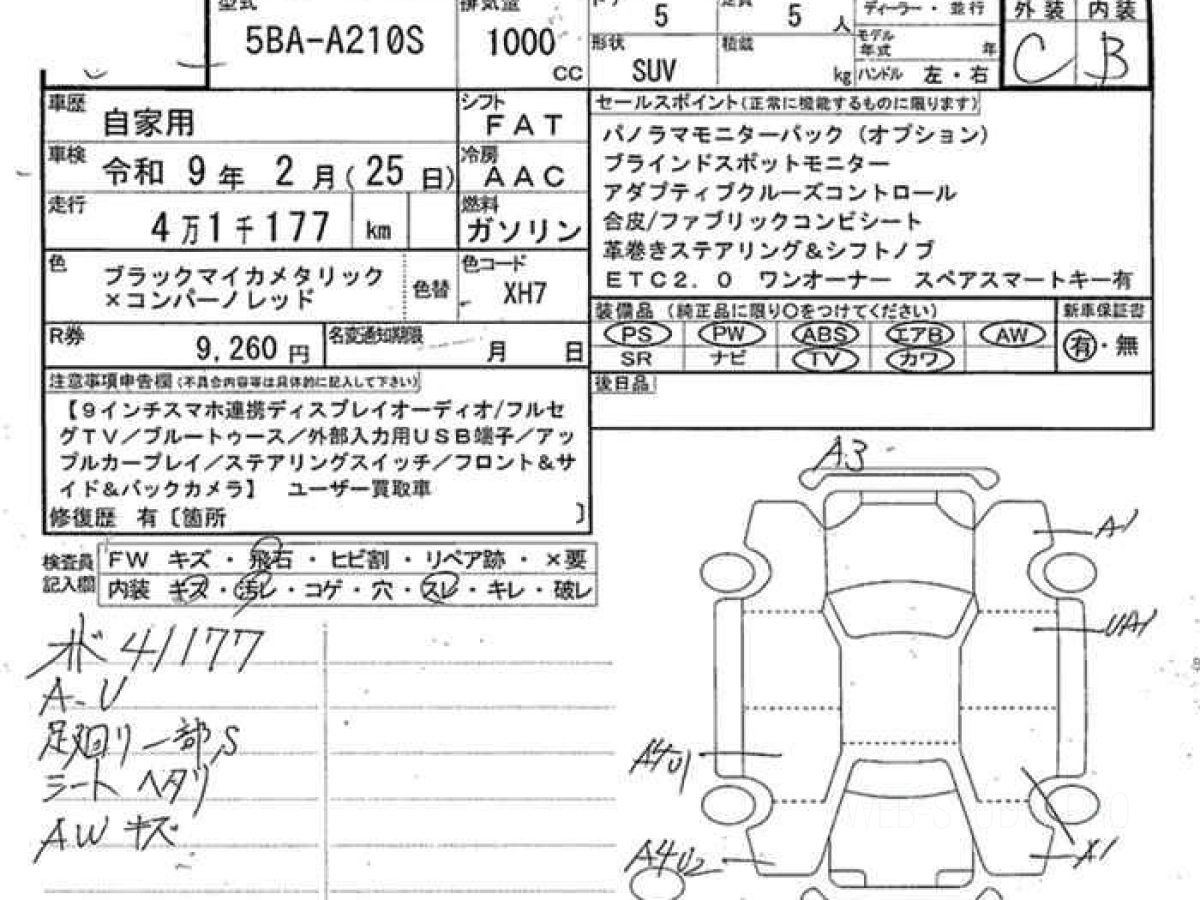 型式 排気量 ドア 定員 ディーラー・並行 外装 内装
5BA-A210S 1000 CC 5 5 人 モデル年式 年 C B
形状 SUV 積載 kg ハンドル 左・右
車歴 自家用 シフト FAT
車検 令和 9年 2月(25日) 冷房 AAC
走行 4万1千177 km 燃料 ガソリン
色 ブラックマイカメタリック
×コンパーノレッド 色替 色コード XH7
R券 9,260 円 名変通知期限 月 日
セールスポイント(正常に機能するものに限ります)
パノラマモニターパック(オプション)
ブラインドスポットモニター
アダプティブクルーズコントロール
合皮/ファブリックコンビシート
革巻きステアリング&シフトノブ
ETC2.0 ワンオーナー スペアスマートキー有
装備品(純正品に限り○をつけてください) 新車保証書
PS PW ABS エアB AW 有・無
SR ナビ TV カワ
後日品
注意事項申告欄(不具合内容等は具体的に記入して下さい)
【9インチスマホ連携ディスプレイオーディオ/フルセ
グTV/ブルートゥース/外部入力用USB端子/アッ
プルカープレイ/ステアリングスイッチ/フロント&サ
イド&バックカメラ】 ユーザー買取車
修復歴 有〔箇所 〕
検査員記入欄
FW キズ・飛石・ヒビ割・リペア跡・×要
内装 キズ・汚レ・コゲ・穴・スレ・キレ・破レ
ボ 41177
A-U
足廻り一部S
シート ヘタリ
AW キズ
A3
A1
UA1
A4U1
A4U2
X1